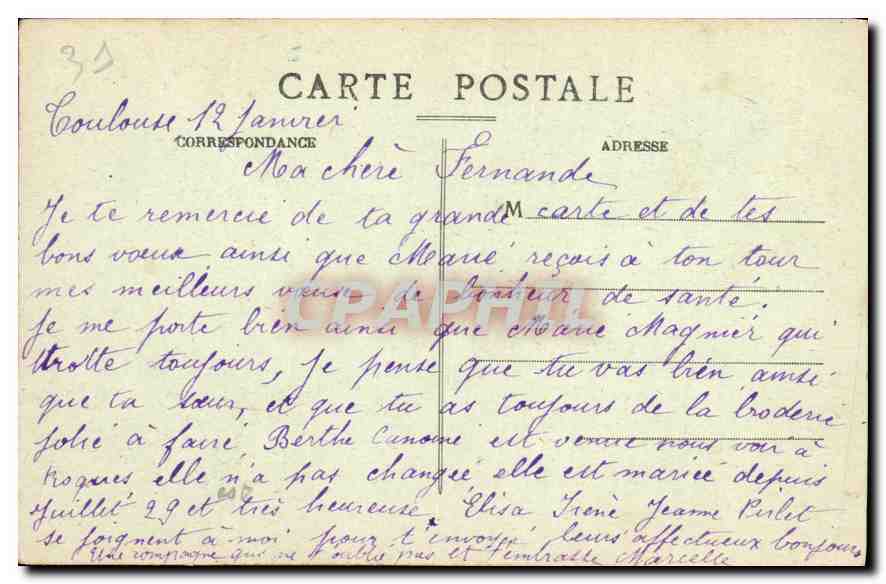 31
CARTE POSTALE
Toulouse 12 Janvier
CORRESPONDANCE
ADRESSE
Ma chère Fernande
Je te remercie de ta grande M carte et de tes
bons voeux ainsi que Marie reçois à ton tour
mes meilleurs voeux de bonheur de santé.
Je me porte bien ainsi que Marie Magnier qui
trotte toujours, je pense que tu vas bien ainsi
que ta soeur, et que tu as toujours de la broderie
jolie à faire Berthe est venue nous voir à
Roques elle n'a pas changée elle est mariée depuis
Juillet 29 et est très heureuse Elisa Irène Jeanne
se joignent à moi pour t'envoyé leurs affectueux bonjours
Une compagne qui ne t'oublie pas et t'embrasse Marcelle
CPAPHIL